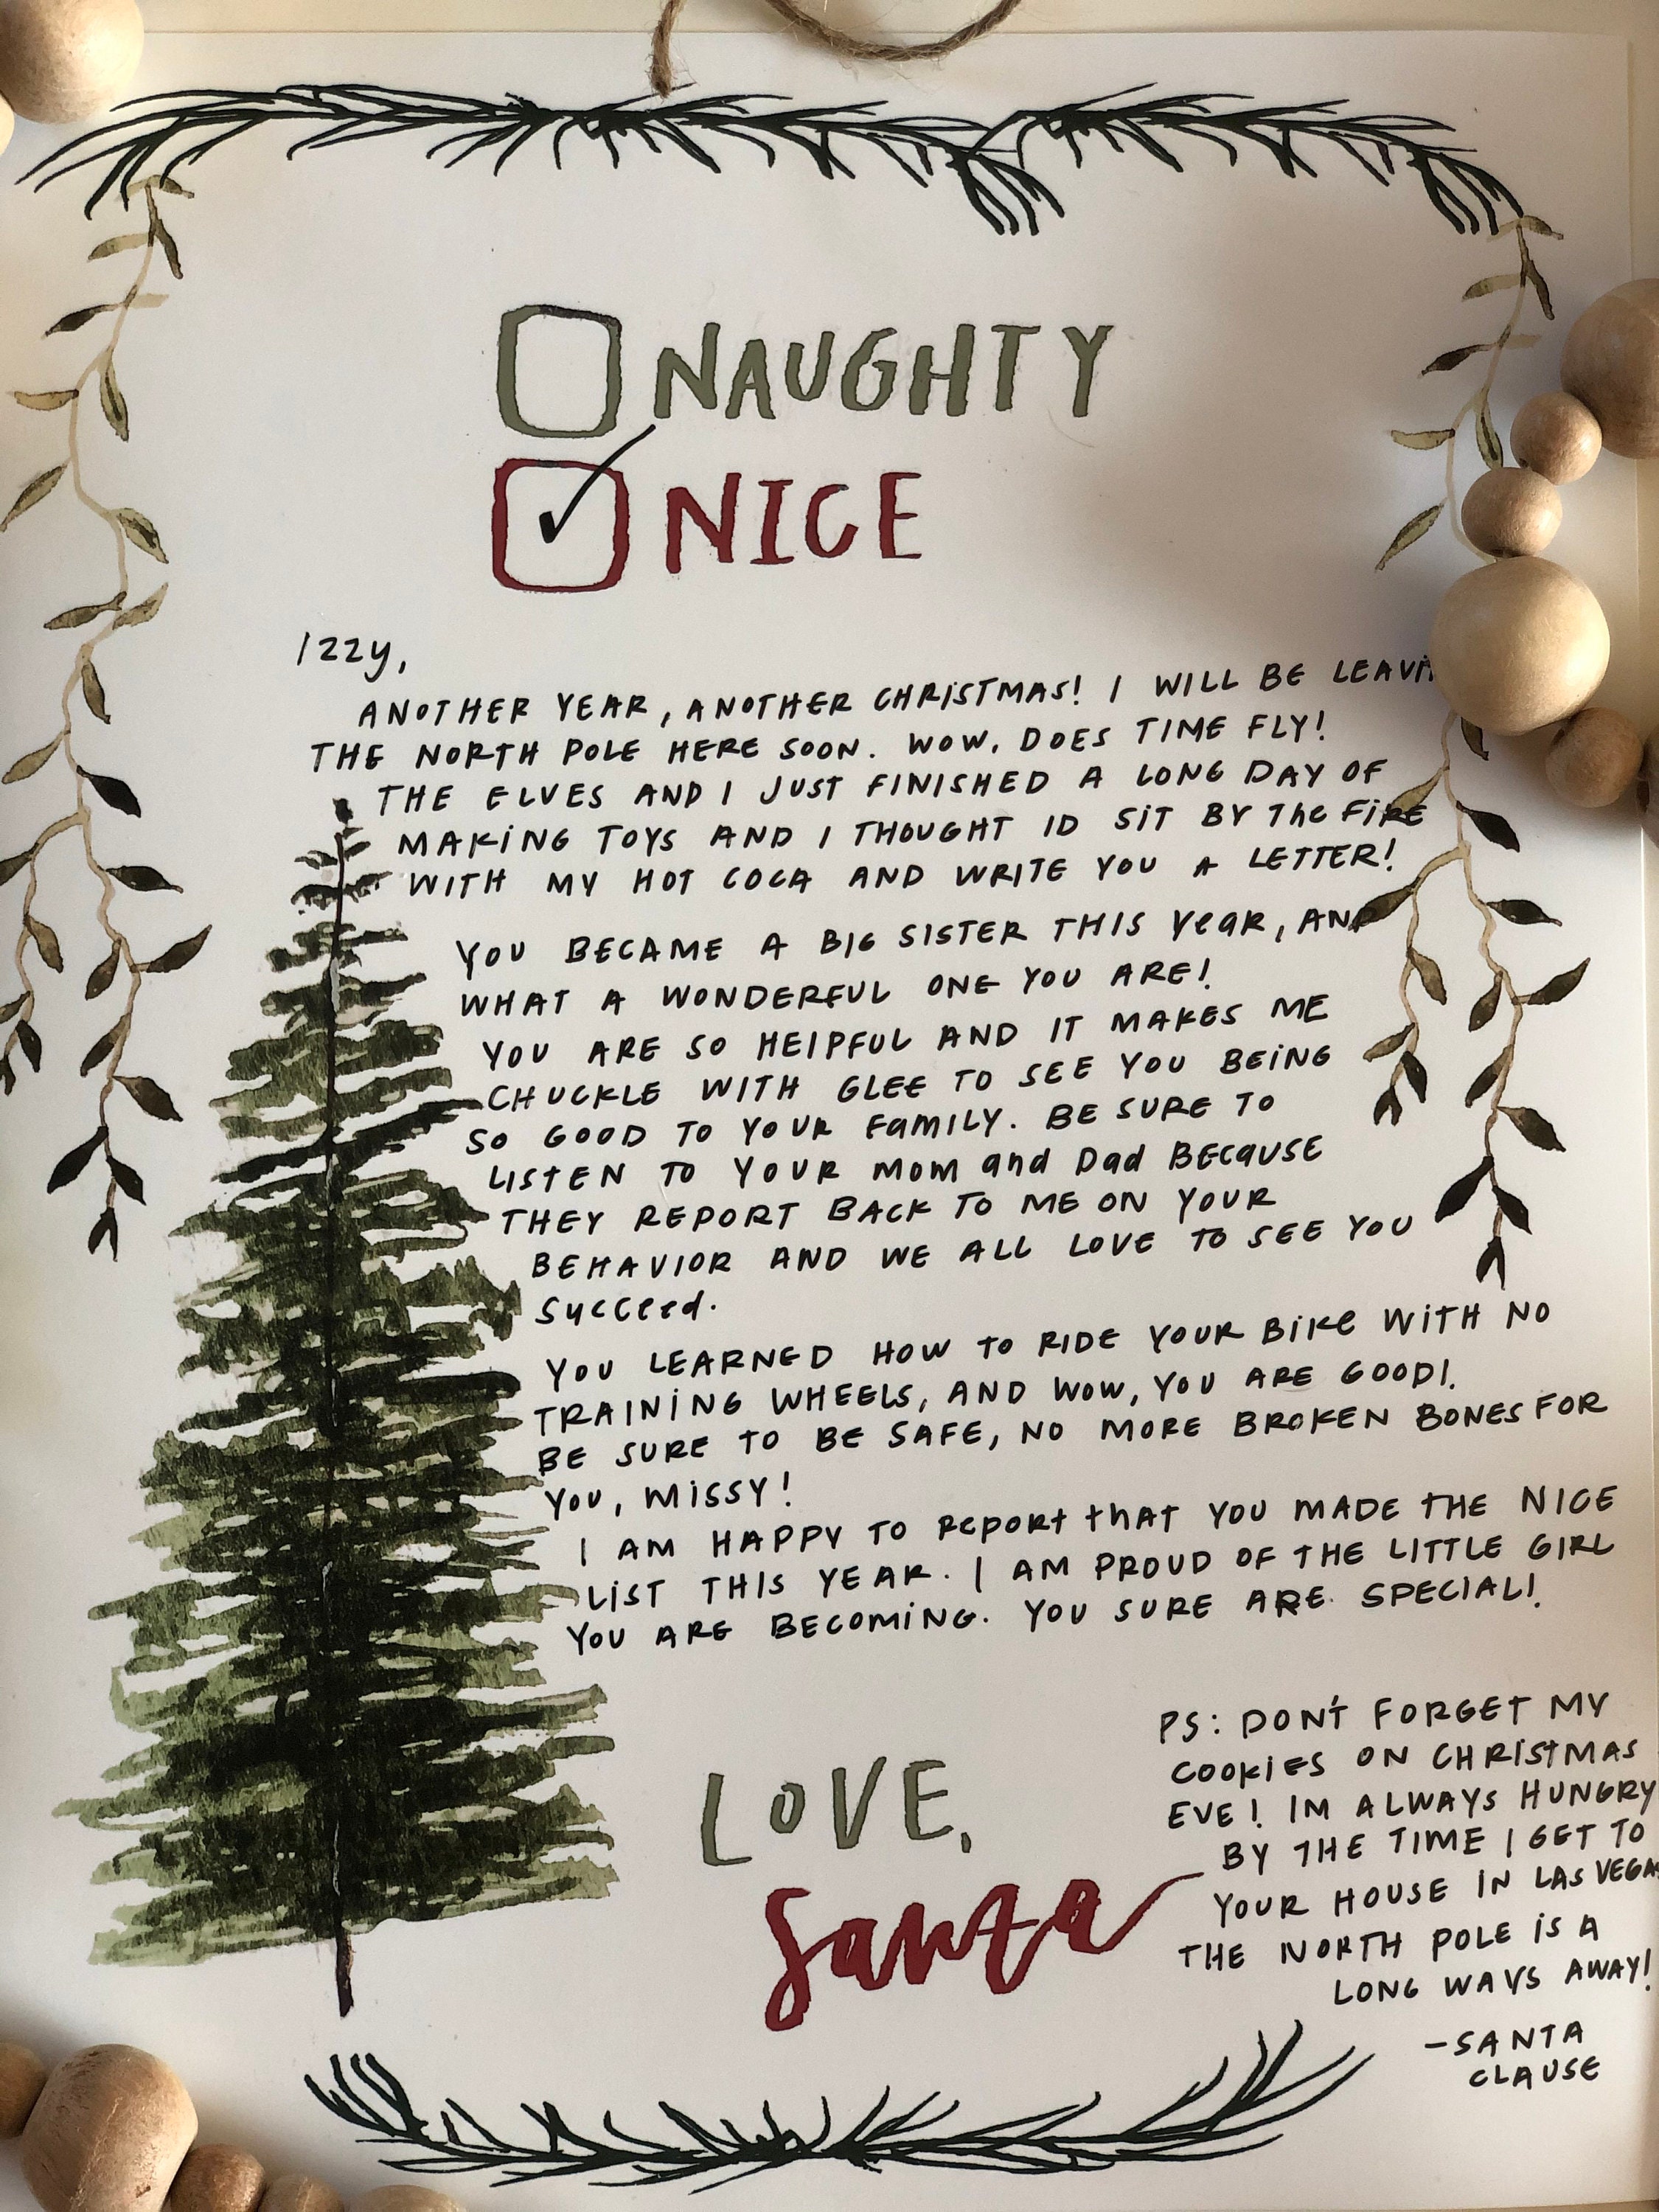 NAUGHTY
NICE
Izzy,
ANOTHER YEAR, ANOTHER CHRISTMAS! I WILL BE
THE NORTH POLE HERE SOON. WOW, DOES TIME FLY!
THE ELVES AND I JUST FINISHED A LONG DAY OF
MAKING TOYS AND I THOUGHT ID SIT BY The FIRE
WITH MY HOT COCA AND WRITE YOU A LETTER!
YOU BECAME A BIG SISTER THIS Year, AND
WHAT A WONDERFUL ONE YOU ARE!
YOU ARE SO HElPFUL AND IT MAKES ME
CHUCKLE WITH GLEE TO SEE YOU BEING
SO GOOD TO YOUR FamILY. BE SURE TO
LISTEN TO YOUR Mom and Dad BECaUSE
THEY REPORT BACK TO ME ON YOUR
BEHAVIOR AND WE ALL LOVE TO SEE YOU
succeed.
YOU LEARNED HOW TO RIDE YOUR BIKe WITH NO
TRAINING WHEELS, AND WOW, YOU ARE GOOD!
BE SURE TO BE SAFE, NO MORE BROKEN BONES FOR
YOU, MISSY!
I AM HAPPY TO Report that YOU MADE THE NICE
LIST THIS YEAR. I AM PROUD OF THE LITTLE GIRL
YOU ARE BECOMING. YOU SURE ARE SPECIAL!
LOVE,
Santa
PS: DON'T FORGET MY
COOKIES ON CHRISTMAS
EVE! IM ALWAYS HUNGRY
BY THE TIME I GET TO
YOUR HOUSE IN LAS VEGAS
THE NORTH POLE IS A
LONG WAYS AWAY!
-SANTA
CLAUSE